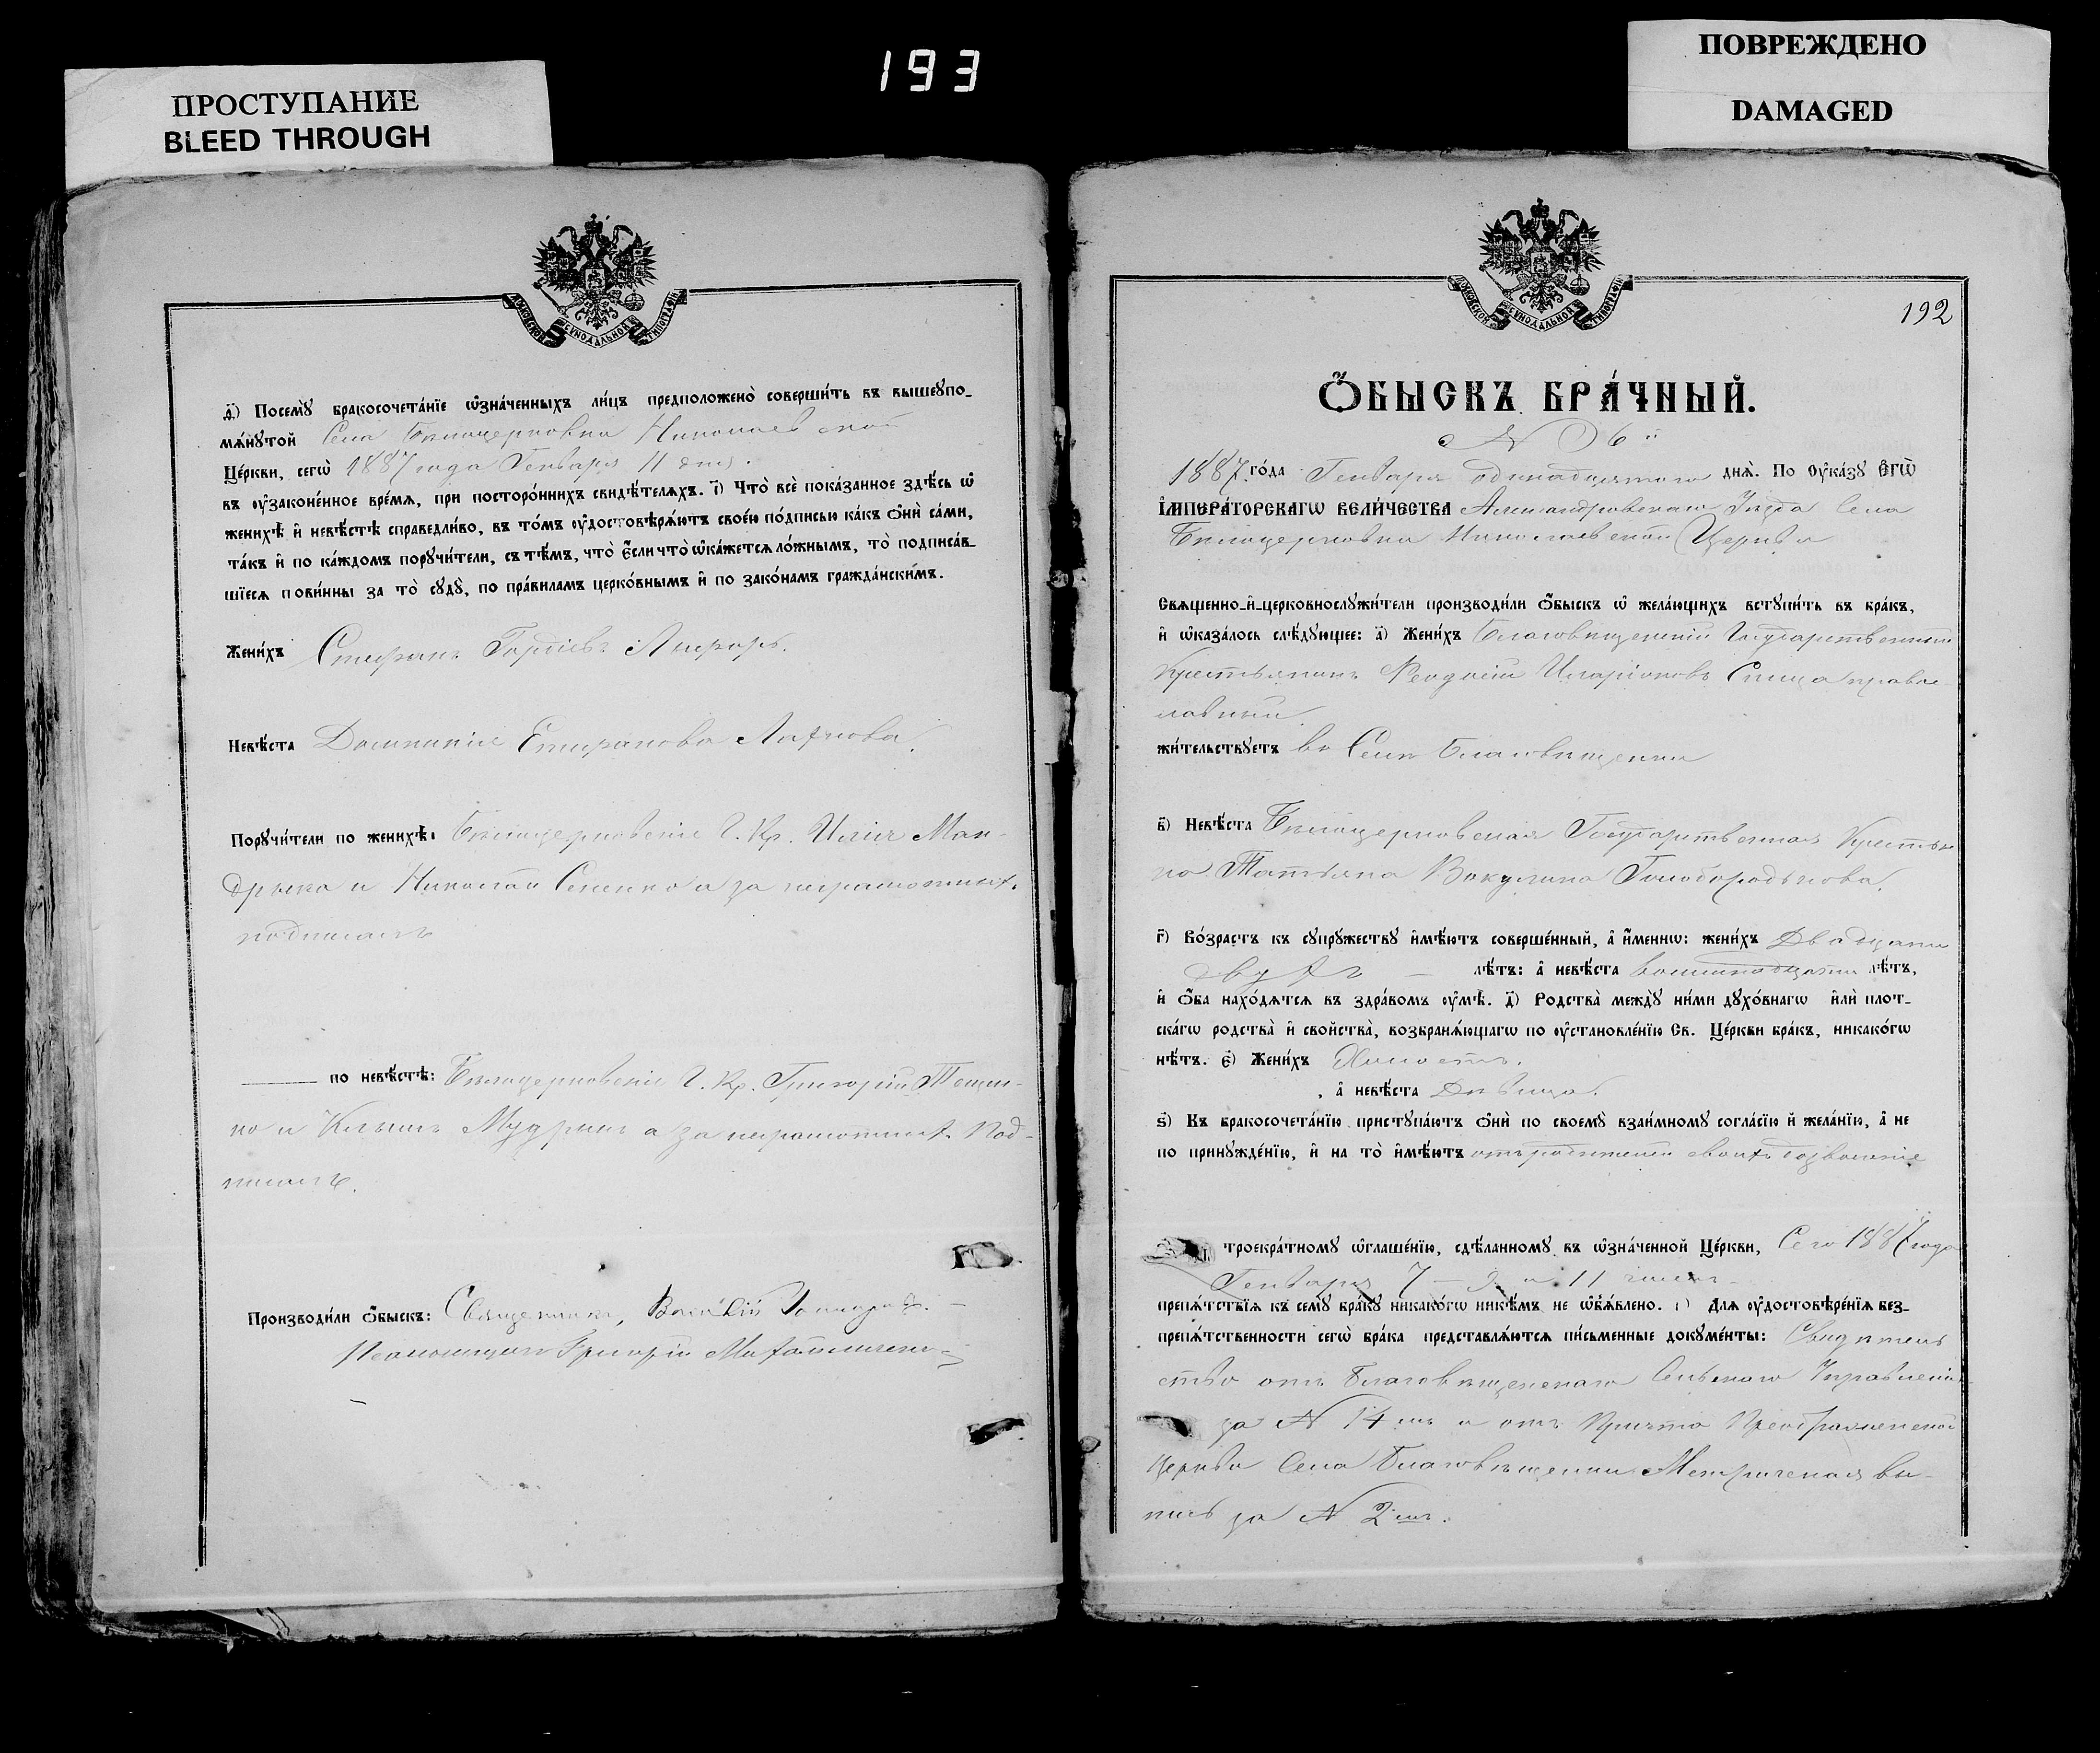 ПРОСТУПАНИЕ
BLEED THROUGH
193
ПОВРЕЖДЕНО
DAMAGED
МОСКОВСКОЙ СѴНОДАЛЬНОЙ ТИПОГРАФІИ
д҃і) Посемꙋ̀ бракосочета́нїе ѡ҆зна́ченныхъ ли́цъ предположено̀ соверши́ть въ вышеꙋпо-
мѧ́нꙋтой Села Бѣлоцерковки Николаевской
Це́ркви, сегѡ̀ 1887 года Генваря 11 дня.
въ ᲂу҆законе́нное вре́мѧ, при посторо́ннихъ свидѣ́телѧхъ. і҃) Что̀ всѐ пока́занное здѣ́сь ѡ҆
женихѣ̀ и҆ невѣ́стѣ справедли́во, въ то́мъ ᲂу҆достовѣрѧ́ютъ свое́ю по́дписью ка́къ ѻ҆нѝ са́ми,
та́къ и҆ по ка́ждомъ порꙋчи́тели, съ тѣ́мъ, что̀ є҆́сли что̀ ѡ҆ка́жетсѧ ло́жнымъ, то̀ подписа́в-
шїесѧ пови́нны за то̀ сꙋдꙋ̀, по пра́виламъ церко́внымъ и҆ по зако́намъ гражда́нскимъ.
Жени́хъ Стефанъ Гордіевъ
Невѣ́ста Домникія Стефанова
Порꙋчи́тели по женихѣ̀: Бѣлоцерковскіе Г. Кр. Илія Ман-
дрыка и Николай Сененко а за неграмотныхъ
подписалъ
по невѣ́стѣ: Бѣлоцерковскіе Г. Кр. Григорій Тещен-
ко и Климъ Мудракъ а за неграмотныхъ Под-
писалъ.
Производи́ли ѻ҆́быскъ: Священникъ, Василій
Псаломщикъ Григорій Михайличенко
МОСКОВСКОЙ СѴНОДАЛЬНОЙ ТИПОГРАФІИ
192
Ѻ҆́БЫСКЪ БРА́ЧНЫЙ.
№ 6й
1887 го́да Генваря одинадцятого днѧ̀. По ᲂу҆ка́зꙋ Є҆гѡ̀
І҆МПЕРА́ТОРСКАГѠ ВЕЛИ́ЧЕСТВА Александровскаго Уѣзда Села
Бѣлоцерковки Николаевской Церкви
Свѧще́нно-и҆-церковнослꙋжи́тели производи́ли ѻ҆́быскъ ѡ҆ жела́ющихъ встꙋпи́ть въ бра́къ,
и҆ ѡ҆каза́лось слѣ́дꙋющее: а҃) Жени́хъ Благовѣщенскій Государственный
Крестьянинъ Феодосій Иларіоновъ Спица право-
славный.
жи́тельствꙋетъ въ Селѣ Благовѣщенки
в҃) Невѣ́ста Бѣлоцерковская Государственная Крестьян
ка Татьяна Вакулина Голобородькова.
г҃) Во́зрастъ къ сꙋпрꙋ́жествꙋ и҆мѣ́ютъ соверше́нный, а҆ и҆́меннѡ: жени́хъ Двадцати
двухъ — лѣ́тъ: а҆ невѣ́ста восемнадцати лѣ́тъ,
и҆ ѻ҆́ба нахо́дѧтсѧ въ здра́вомъ ᲂу҆мѣ̀. д҃) Родства̀ междꙋ̀ ни́ми дꙋхо́внагѡ и҆лѝ плот-
ска́гѡ родства̀ и҆ свойства̀, возбранѧ́ющагѡ по ᲂу҆становле́нїю Св. Це́ркви бра́къ, никако́гѡ
нѣ́тъ. є҃) Жени́хъ Холостъ.
а҆ невѣ́ста Дѣвица.
ѕ҃) Къ бракосочета́нїю пристꙋпа́ютъ ѻ҆нѝ по своемꙋ̀ взаи́мномꙋ согла́сїю и҆ жела́нїю, а҆ не
по принꙋжде́нїю, и҆ на то̀ и҆мѣ́ютъ отъ родителей своихъ дозволеніе
троекра́тномꙋ ѡ҆глаше́нїю, сдѣ́ланномꙋ въ ѡ҆зна́ченной Це́ркви, Сего 1887 года
Генваря 7 — 9 и 11 чиселъ
препѧ́тствїѧ къ семꙋ̀ бра́кꙋ никако́гѡ никѣ́мъ не ѡ҆б̾ѧ́влено. Длѧ ᲂу҆достовѣре́нїѧ без-
препѧ́тственности сегѡ̀ бра́ка представлѧ́ютсѧ пи́сьменные докꙋме́нты: Свидѣтель
ство отъ Благовѣщенскаго Сельскаго Управленія
за № 14мъ и отъ Причта Преображенской
Церкви Села Благовѣщенки Метрическая вы-
пись за № 2мъ.